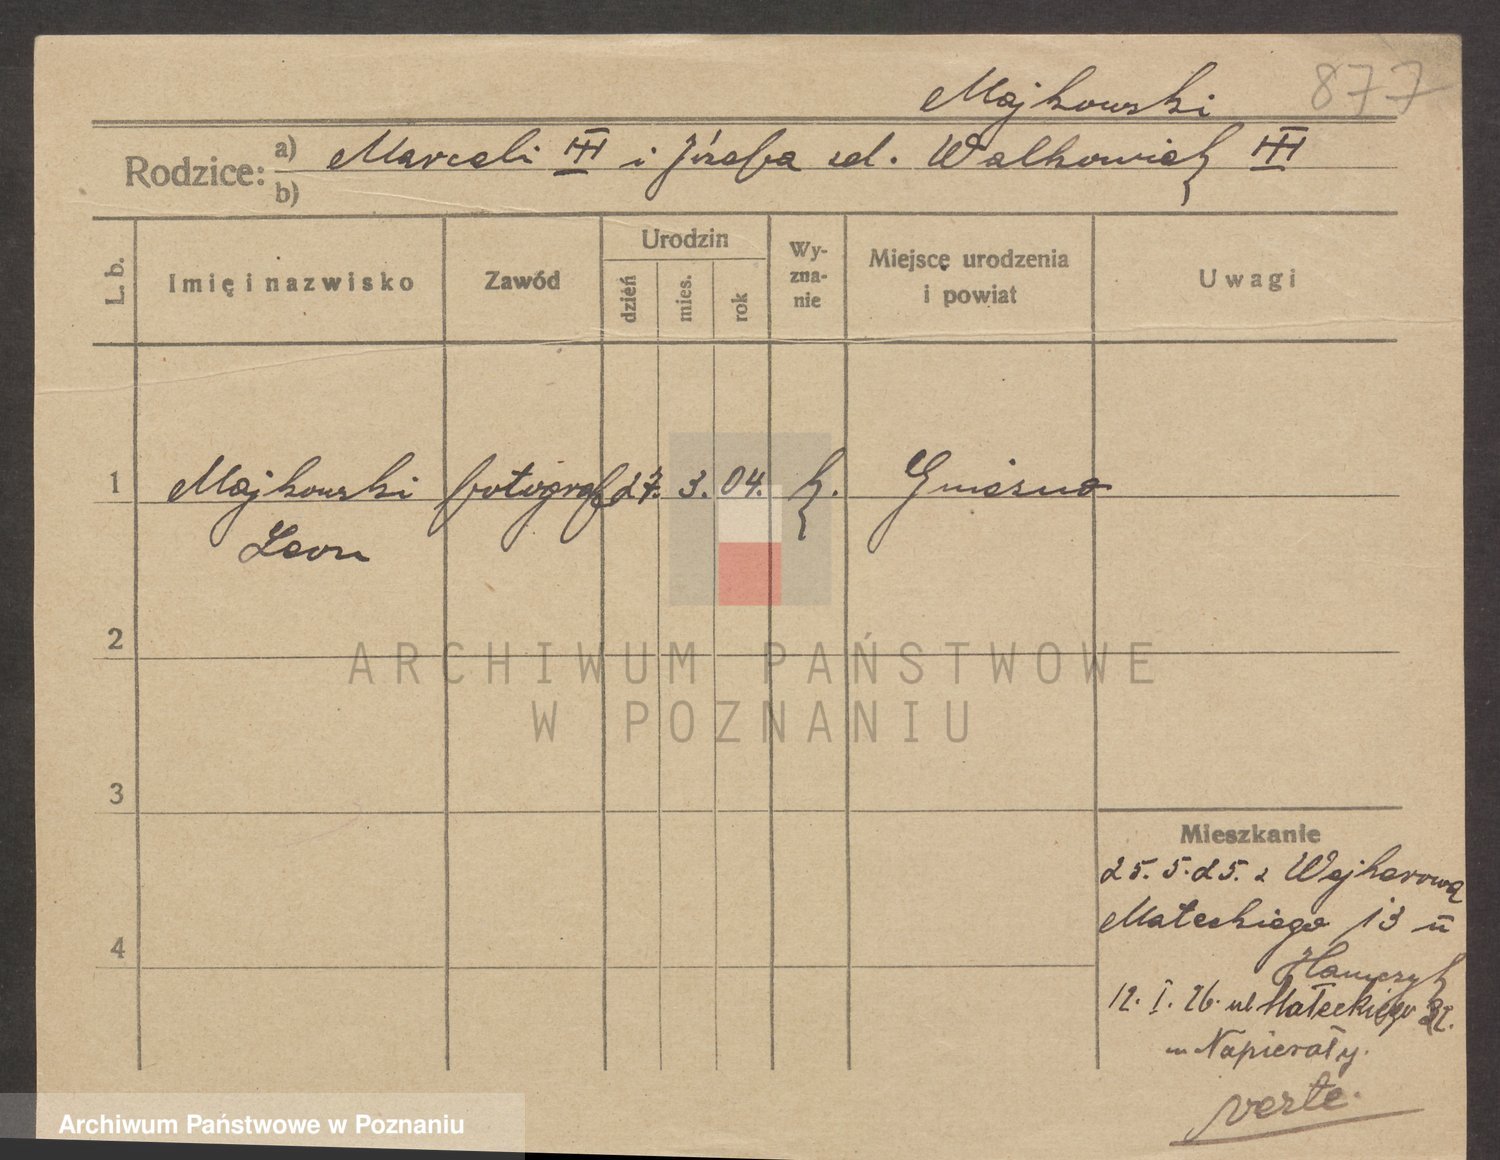 877
Majkowski
Rodzice: a) Marceli III i Józefa zd. Walkowiak III
b)
L. b.
Imię i nazwisko
Zawód
Urodzin
dzień
mies.
rok
Wy-
zna-
nie
Miejsce urodzenia
i powiat
Uwagi
1 Majkowski fotograf 27. 3. 04. k. Gniezno
Leon
2
ARCHIWUM PAŃSTWOWE
W POZNANIU
3
Mieszkanie
25. 5. 25. z Wejherowa
Małeckiego 13 II
4
12. I. 26. ul Małeckiego
Napierały.
verte.
Archiwum Państwowe w Poznaniu